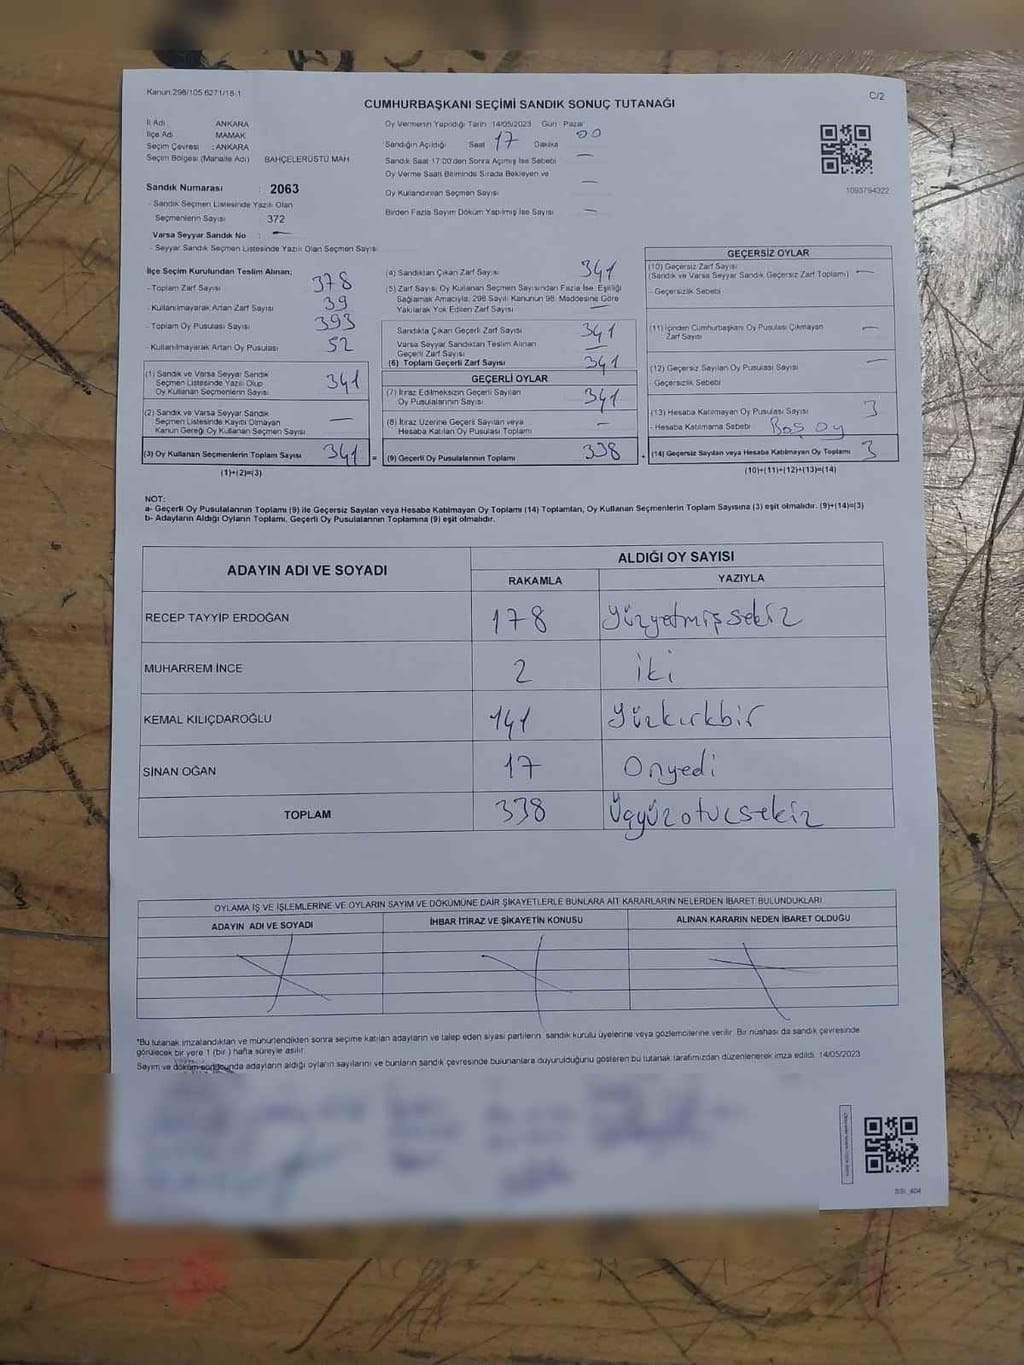 Kanun:298/105 6271/18-1
C/2
CUMHURBAŞKANI SEÇİMİ SANDIK SONUÇ TUTANAĞI
İl Adı ANKARA
İlçe Adı MAMAK
Seçim Çevresi : ANKARA
Seçim Bölgesi (Mahalle Adı) BAHÇELERÜSTÜ MAH
Sandık Numarası : 2063
- Sandık Seçmen Listesinde Yazılı Olan
Seçmenlerin Sayısı 372
Varsa Seyyar Sandık No : —
- Seyyar Sandık Seçmen Listesinde Yazılı Olan Seçmen Sayısı
Oy Vermenin Yapıldığı Tarih 14/05/2023 Gün Pazar
Sandığın Açıldığı Saat 17 Dakika 00
Sandık Saat 17:00'den Sonra Açılmış İse Sebebi —
Oy Verme Saati Bitiminde Sırada Bekleyen ve
Oy Kullandırılan Seçmen Sayısı —
Birden Fazla Sayım Döküm Yapılmış İse Sayısı —
1093794322
İlçe Seçim Kurulundan Teslim Alınan;
- Toplam Zarf Sayısı 378
- Kullanılmayarak Artan Zarf Sayısı 39
- Toplam Oy Pusulası Sayısı 393
- Kullanılmayarak Artan Oy Pusulası 52
(1) Sandık ve Varsa Seyyar Sandık
Seçmen Listesinde Yazılı Olup
Oy Kullanan Seçmenlerin Sayısı 341
(2) Sandık ve Varsa Seyyar Sandık
Seçmen Listesinde Kayıtlı Olmayan
Kanun Gereği Oy Kullanan Seçmen Sayısı —
(3) Oy Kullanan Seçmenlerin Toplam Sayısı 341 =
(1)+(2)=(3)
(4) Sandıktan Çıkan Zarf Sayısı 341
(5) Zarf Sayısı Oy Kullanan Seçmen Sayısından Fazla İse, Eşitliği
Sağlamak Amacıyla, 298 Sayılı Kanunun 98. Maddesine Göre
Yakılarak Yok Edilen Zarf Sayısı —
Sandıkta Çıkan Geçerli Zarf Sayısı 341
Varsa Seyyar Sandıktan Teslim Alınan
Geçerli Zarf Sayısı —
(6) Toplam Geçerli Zarf Sayısı 341
GEÇERLİ OYLAR
(7) İtiraz Edilmeksizin Geçerli Sayılan
Oy Pusulalarının Sayısı 341
(8) İtiraz Üzerine Geçerli Sayılan veya
Hesaba Katılan Oy Pusulası Toplamı —
(9) Geçerli Oy Pusulalarının Toplamı 338
GEÇERSİZ OYLAR
(10) Geçersiz Zarf Sayısı
(Sandık ve Varsa Seyyar Sandık Geçersiz Zarf Toplamı) —
- Geçersizlik Sebebi
(11) İçinden Cumhurbaşkanı Oy Pusulası Çıkmayan
Zarf Sayısı —
(12) Geçersiz Sayılan Oy Pusulası Sayısı —
- Geçersizlik Sebebi
(13) Hesaba Katılmayan Oy Pusulası Sayısı 3
- Hesaba Katılmama Sebebi Boş oy
(14) Geçersiz Sayılan veya Hesaba Katılmayan Oy Toplamı 3
(10)+(11)+(12)+(13)=(14)
NOT:
a- Geçerli Oy Pusulalarının Toplamı (9) ile Geçersiz Sayılan veya Hesaba Katılmayan Oy Toplamı (14) Toplamları, Oy Kullanan Seçmenlerin Toplam Sayısına (3) eşit olmalıdır. (9)+(14)=(3)
b- Adayların Aldığı Oyların Toplamı, Geçerli Oy Pusulalarının Toplamına (9) eşit olmalıdır.
ADAYIN ADI VE SOYADI
ALDIĞI OY SAYISI
RAKAMLA YAZIYLA
RECEP TAYYİP ERDOĞAN 178 Yüzyetmişsekiz
MUHARREM İNCE 2 iki
KEMAL KILIÇDAROĞLU 141 Yüzkırkbir
SİNAN OĞAN 17 Onyedi
TOPLAM 338 Üçyüzotuzsekiz
OYLAMA İŞ VE İŞLEMLERİNE VE OYLARIN SAYIM VE DÖKÜMÜNE DAİR ŞİKAYETLERLE BUNLARA AİT KARARLARIN NELERDEN İBARET BULUNDUKLARI
ADAYIN ADI VE SOYADI
İHBAR İTİRAZ VE ŞİKAYETİN KONUSU
ALINAN KARARIN NEDEN İBARET OLDUĞU
*Bu tutanak imzalandıktan ve mühürlendikten sonra seçime katılan adayların ve talep eden siyasi partilerin sandık kurulu üyelerine veya gözlemcilerine verilir. Bir nüshası da sandık çevresinde
görülecek bir yere 1 (bir ) hafta süreyle asılır.
Sayım ve döküm sonucunda adayların aldığı oyların sayılarını ve bunların sandık çevresinde bulunanlara duyurulduğunu gösteren bu tutanak tarafımızdan düzenlenerek imza edildi. 14/05/2023